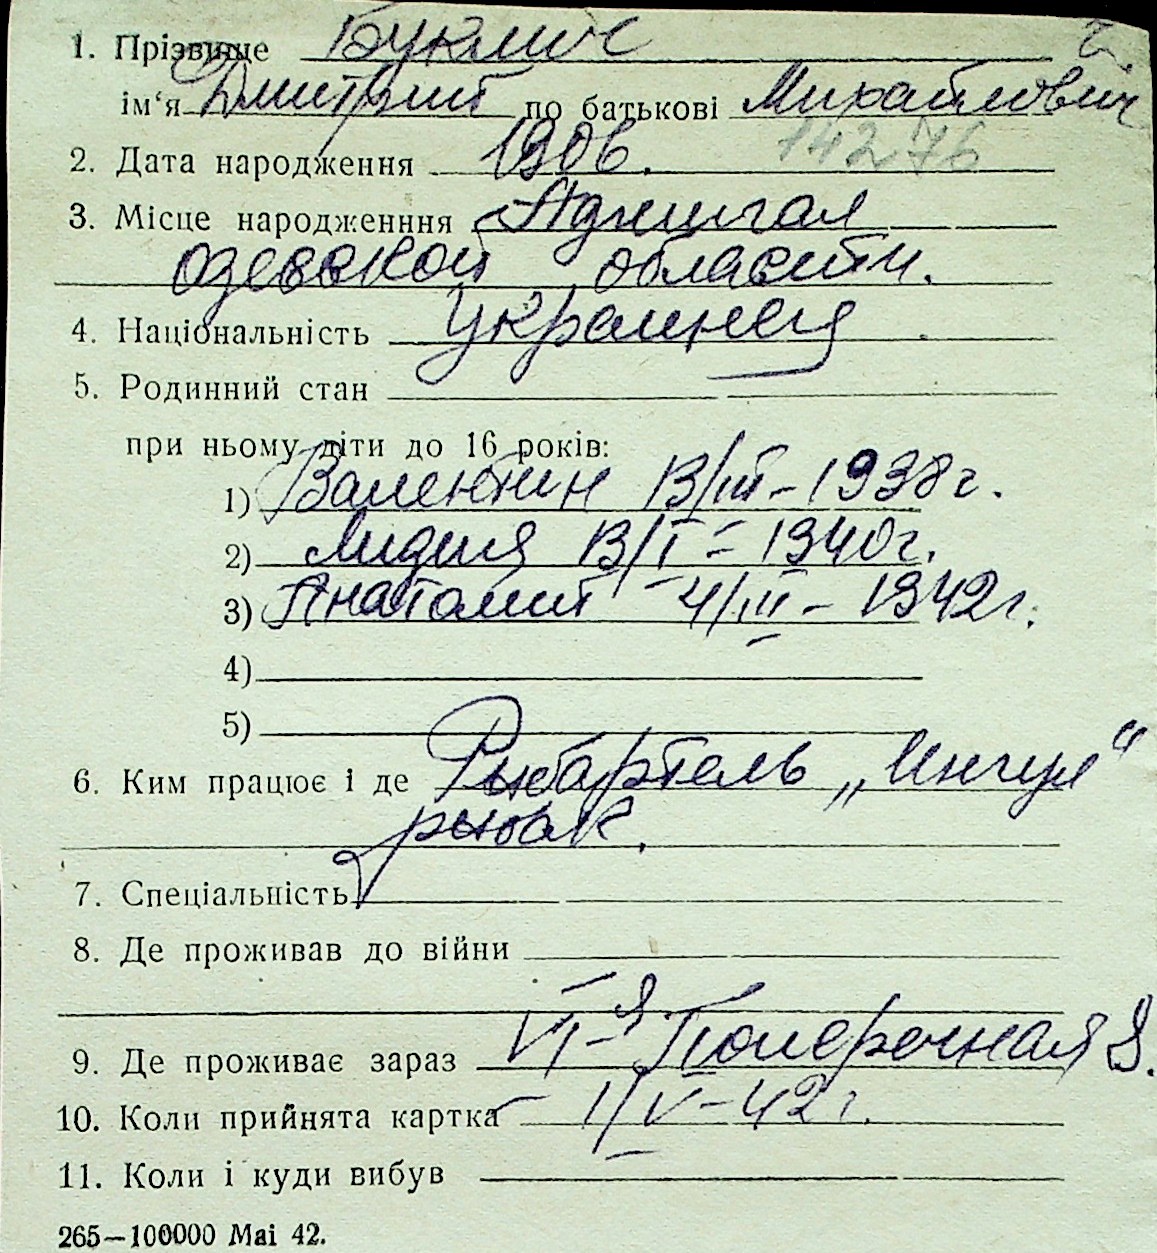 1. Прізвище Буклич
ім‘я Дмитрий по батькові Михайлович
14276
2. Дата народження 1906.
3. Місце народженння Аджигал
одесской области.
4. Національність Украинец
5. Родинний стан
при ньому діти до 16 років:
1) Валентин 13/III – 1938г.
2) Лидия 13/I – 1940г.
3) Анатолий 4/III – 1942г.
4)
5)
6. Ким працює і де Рыбартель „Ингул“
рыбак.
7. Спеціальність
8. Де проживав до війни
9. Де проживає зараз VI-я Поперечная 8.
10. Коли прийнята картка 1/V – 42г.
11. Коли і куди вибув
265—100000 Маі 42.